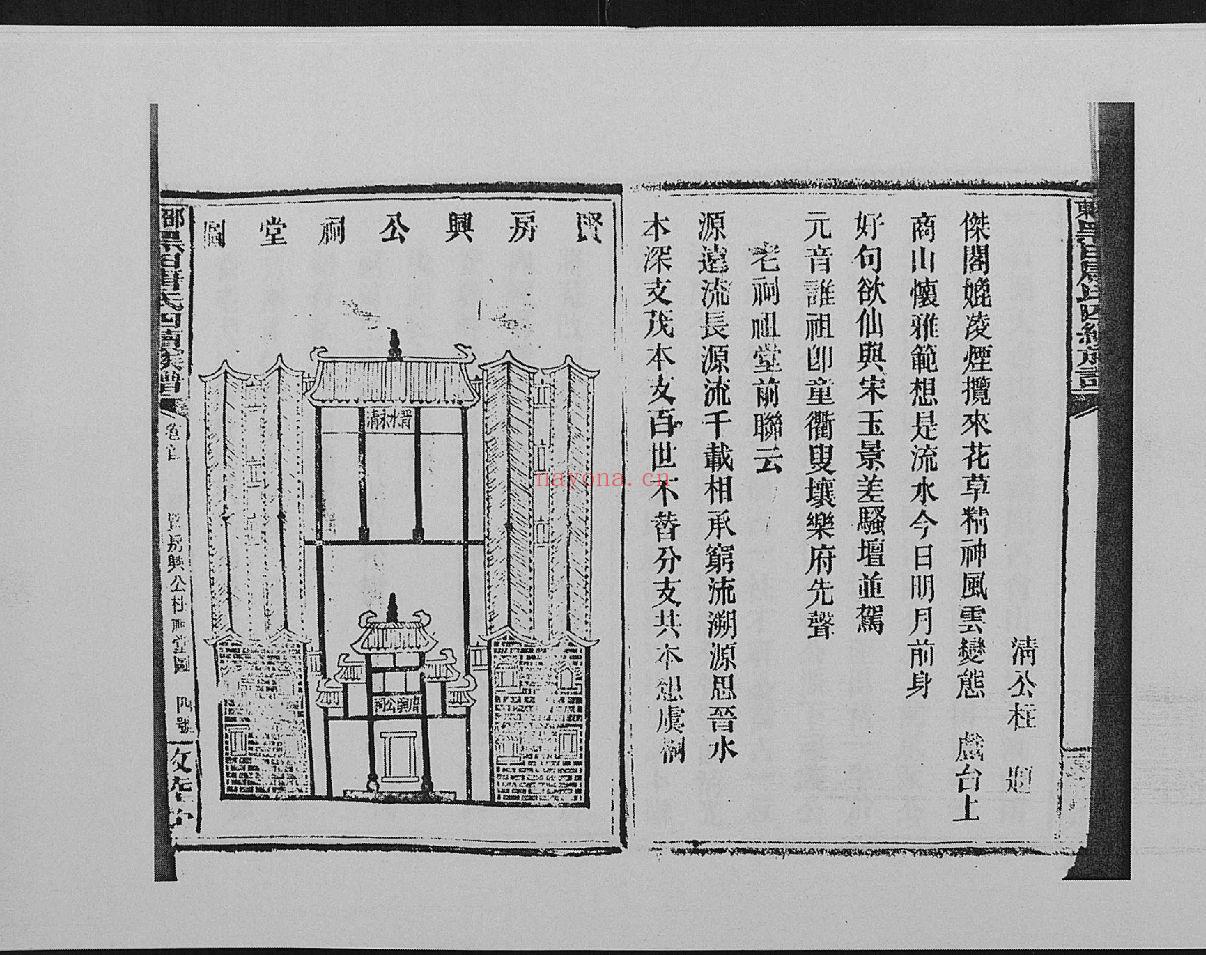 清公枉 題
傑閣媲凌煙攬來花草精神風雲變態 戲台上
商山懷雅範想是流水今日明月前身
好句欲仙與宋玉景差騷壇並駕
元音誰祖即童衢叟壤樂府先聲
老祠祖堂前聯云
源遠流長源流千載相承窮流溯源思晉水
木深支茂本支百世不替分支共本想虞桐
賢房興公祠堂圖
晉水永清
興公祠
唐氏四續族譜
卷首
賢房興公祠堂圖
四號
nayona.cn